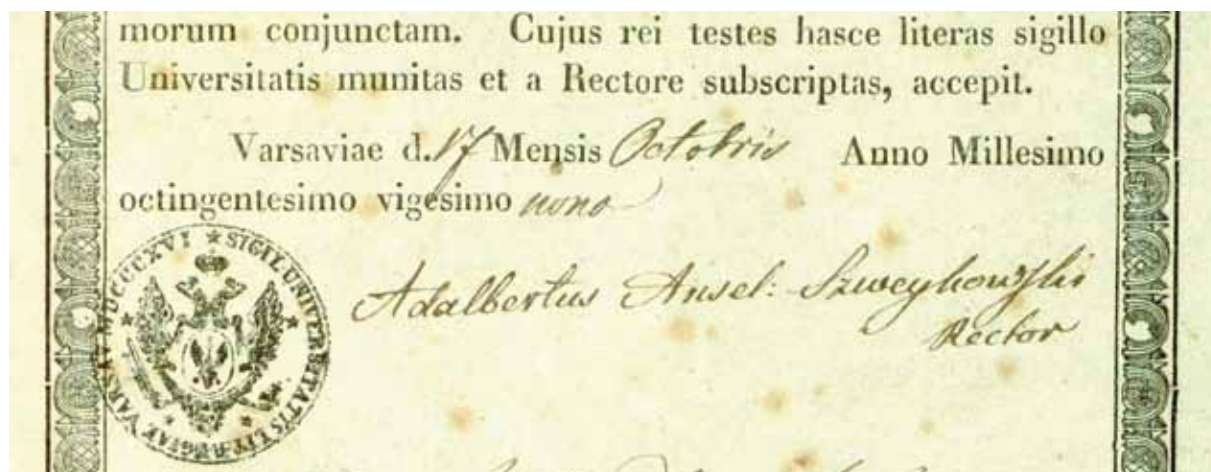 morum conjunctam. Cujus rei testes hasce literas sigillo
Universitatis munitas et a Rectore subscriptas, accepit.
Varsaviae d. 17 Mensis Octobris Anno Millesimo
octingentesimo vigesimo nono
Adalbertus Ansel: Szweykowski
Rector
SIGIL UNIVERSITATIS LIT REGIAE VARSAV MDCCCXVI